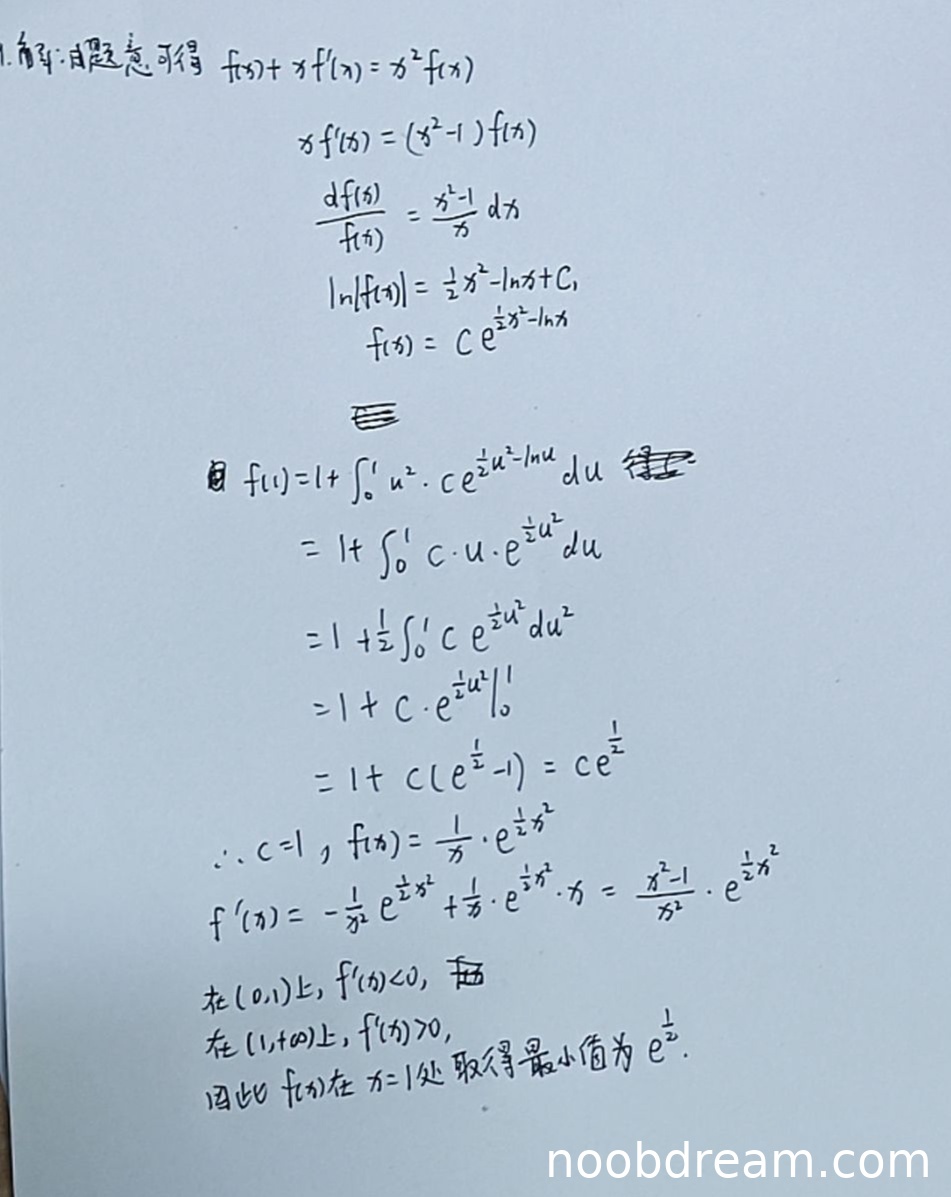 1.解:由题意可得 f(x)+xf'(x)=x²f(x)
xf'(x)=(x²-1)f(x)
df(x)/f(x) = (x²-1)/x dx
ln|f(x)|=½x²-lnx+C₁
f(x)=Ce^(½x²-lnx)
f(1)=1+∫₀¹u²·ce^(½u²-lnu)du
=1+∫₀¹c·u·e^(½u²)du
=1+½∫₀¹ce^(½u²)du²
=1+c·e^(½u²)|₀¹
=1+c(e^½-1)=ce^½
∴c=1,f(x)=1/x·e^(½x²)
f'(x)=-1/x²e^(½x²)+1/x·e^(½x²)·x=(x²-1)/x²·e^(½x²)
在(0,1)上,f'(x)<0,
在(1,+∞)上,f'(x)>0,
因此f(x)在x=1处取得最小值为e^½.
noobdream.com